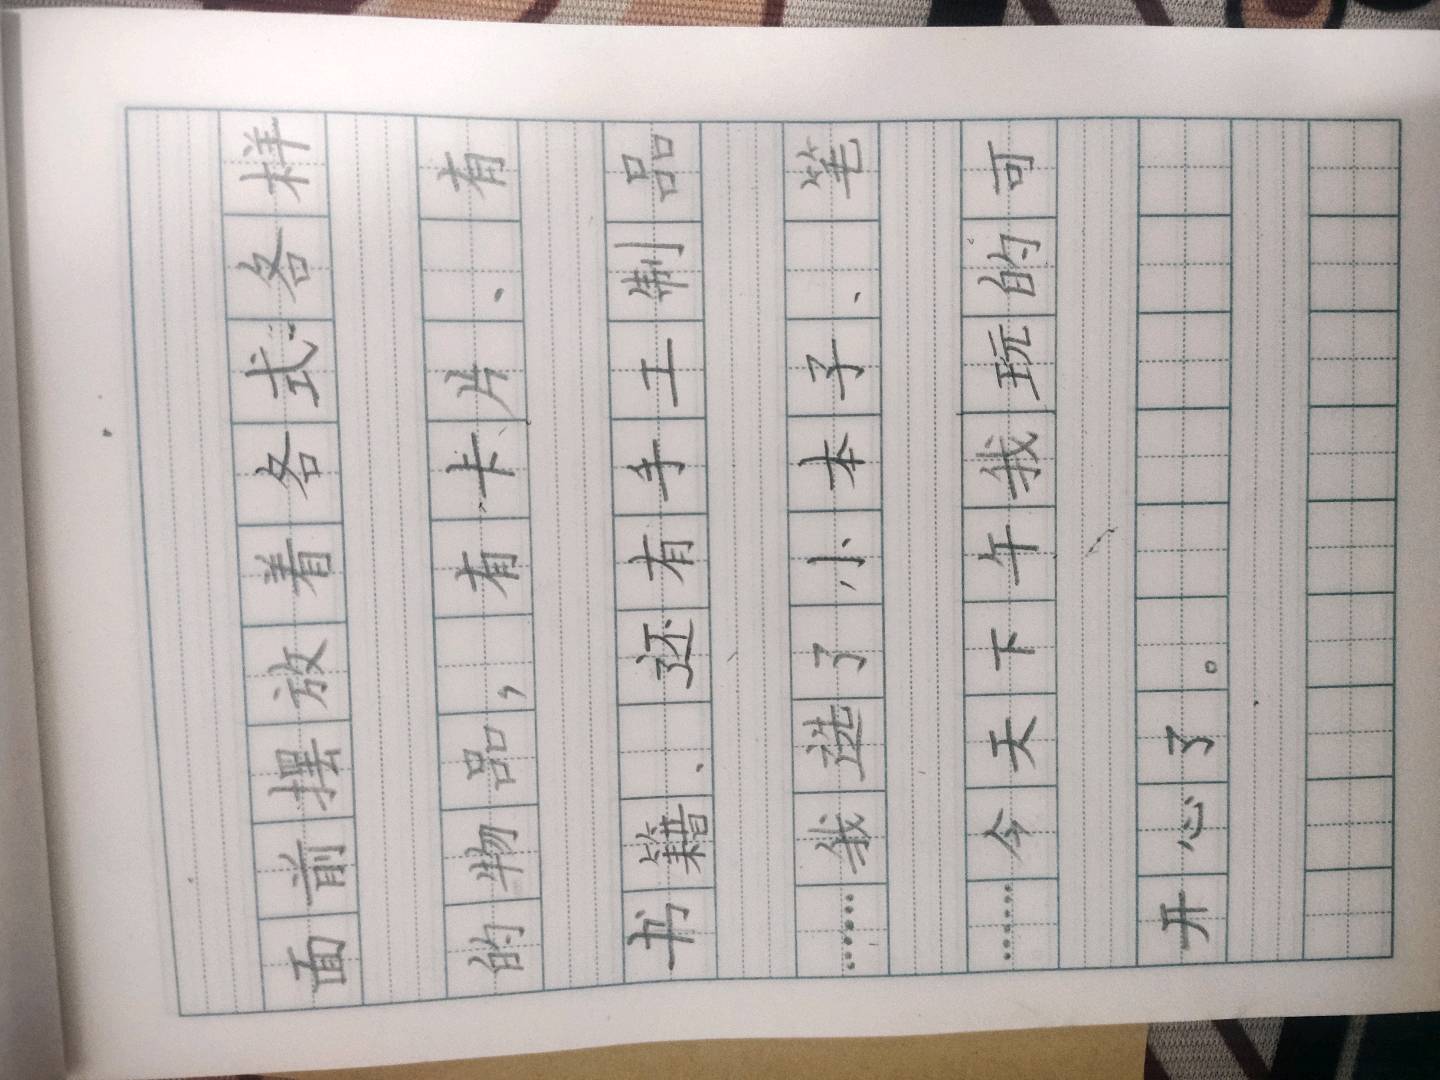 面前摆放着各式各样
的物品，有卡片、有
书籍、还有手工制品
……我选了小本子、笔
……今天下午我玩的可
开心了。